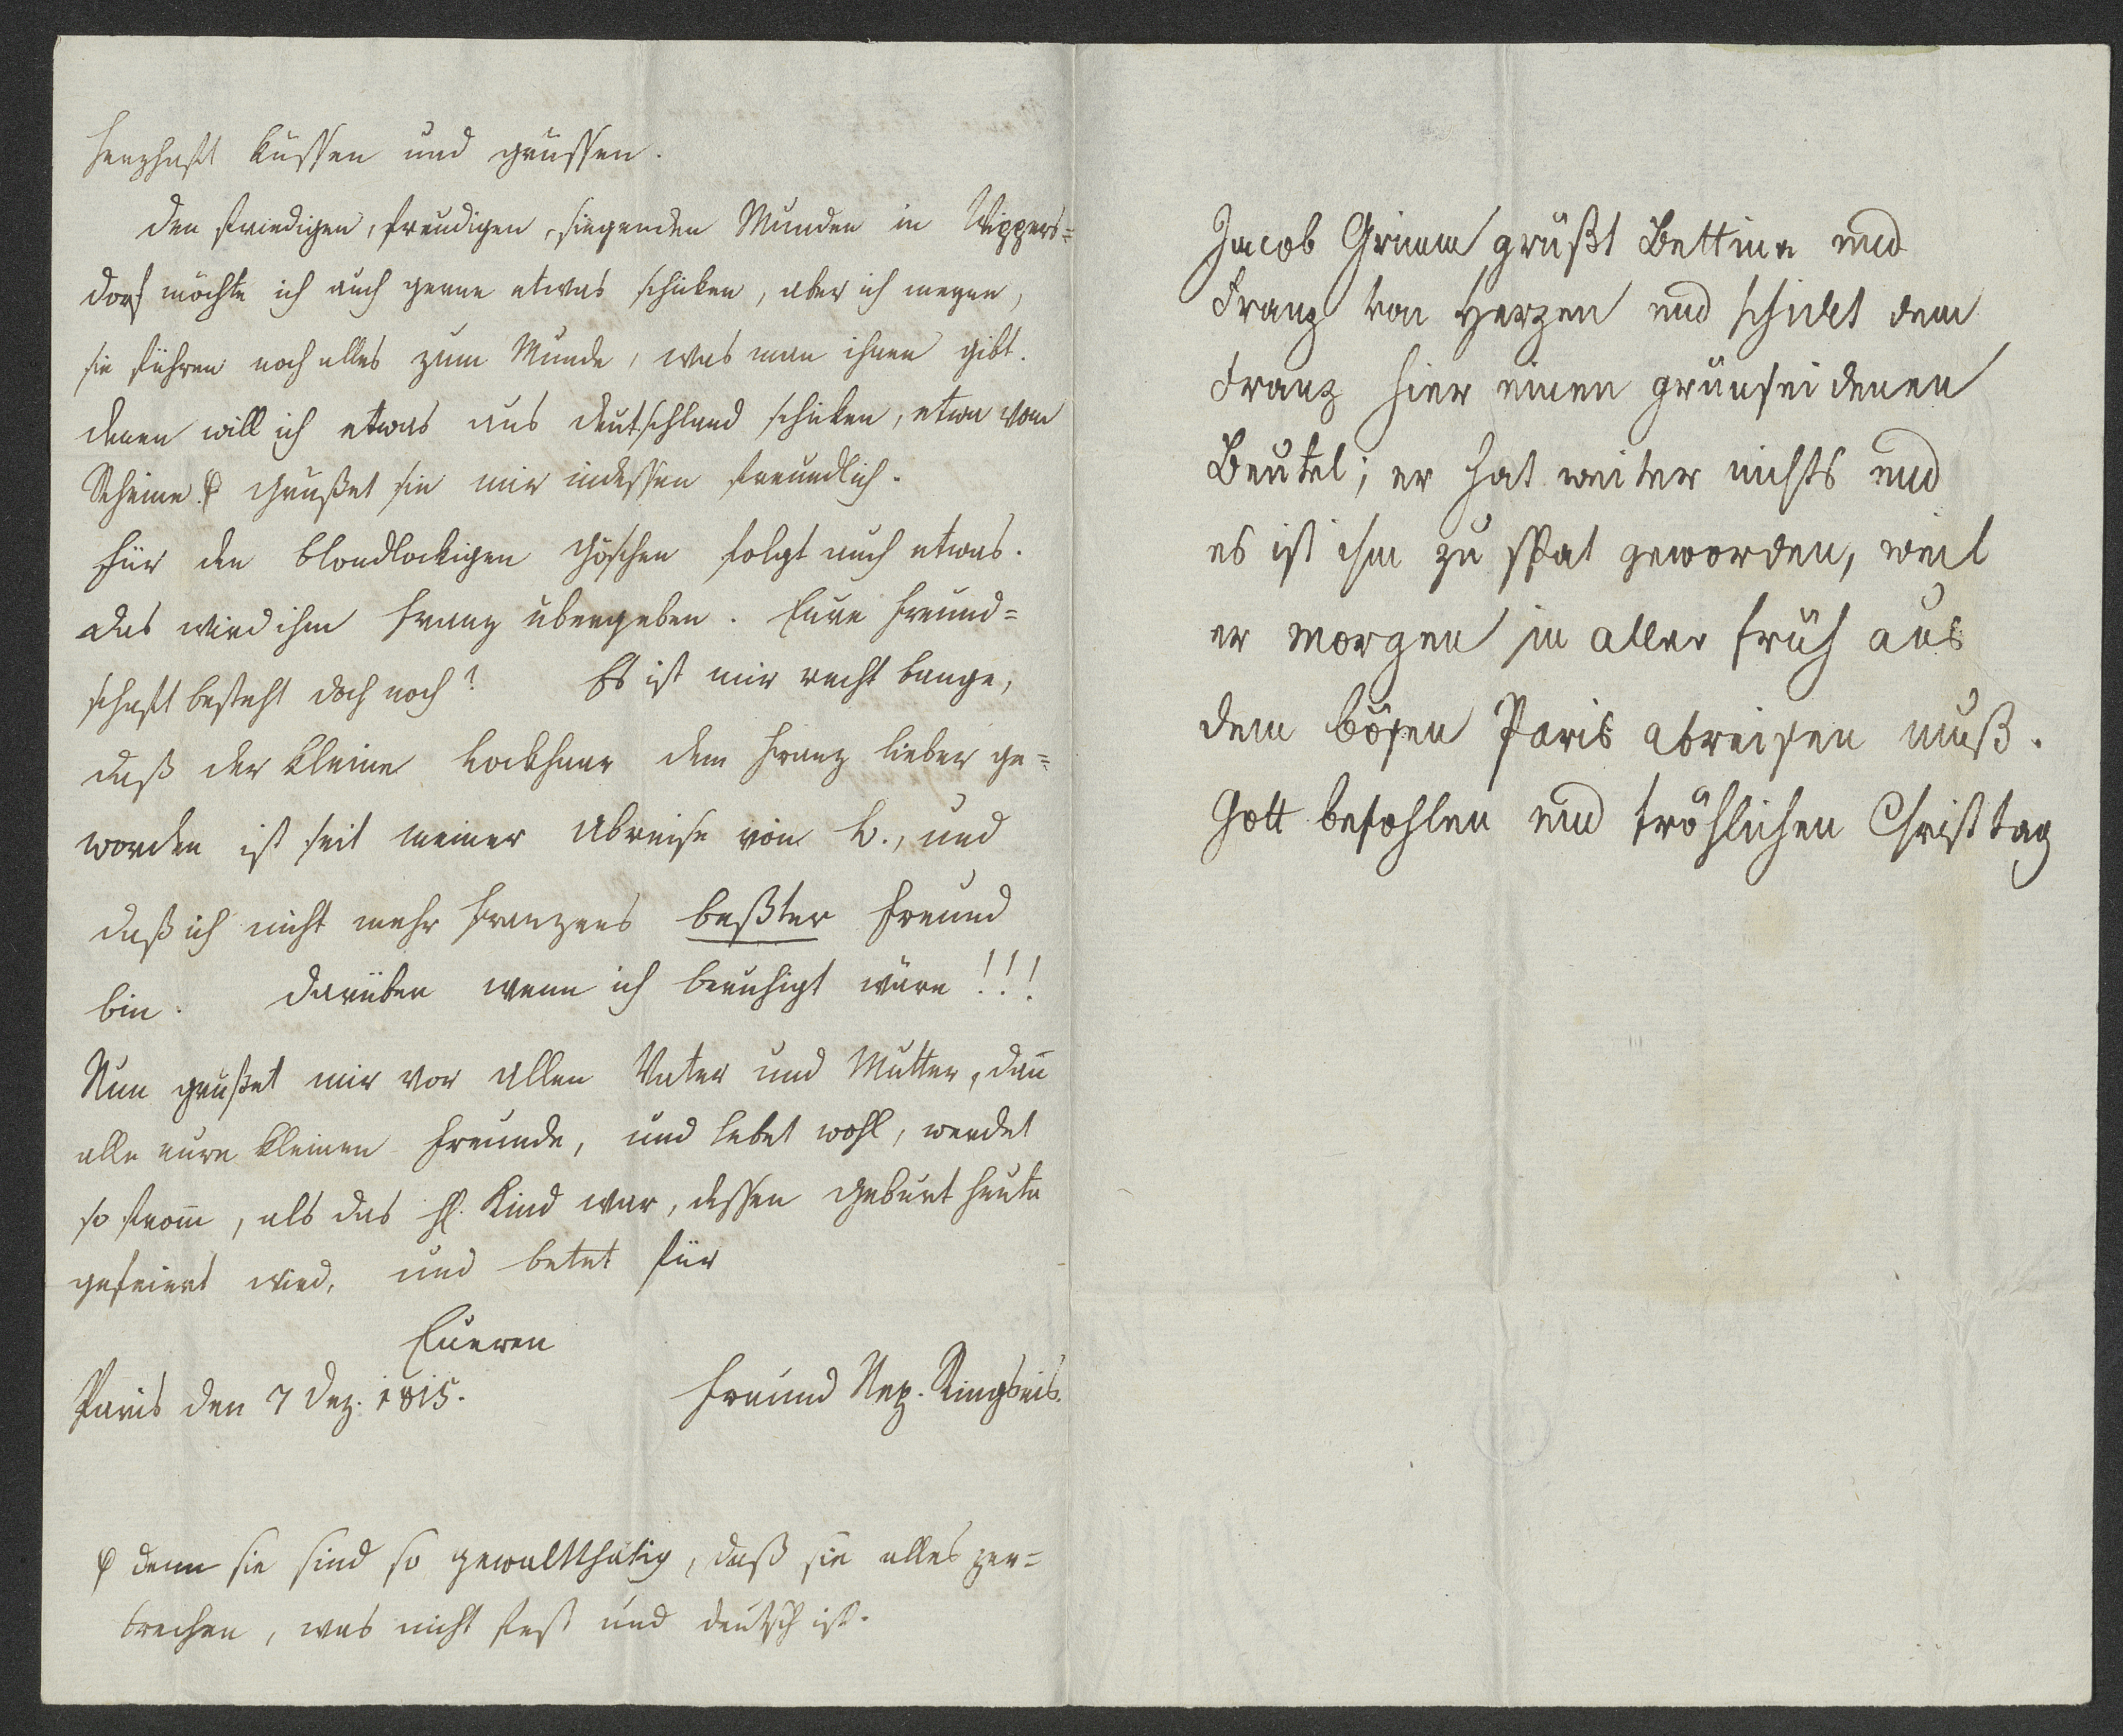 herzhaft küssen und grüssen.
Den friedigen, freudigen, siegenden Munden in Wippers=
dorf möchte ich auch gerne etwas schicken, aber ich meyne,
sie führen noch alles zum Munde, was man ihnen gibt.
denen will ich etwas aus Deutschland schicken, etwa vom
Rheine. ₽ Grüßet sie mir indessen freundlich.
Für den blondlockigen Göschen folgt auch etwas.
das wird ihm Franz übergeben. Eure Freund=
schaft besteht doch noch? Es ist mir recht bange,
daß der kleine Lockhaar dem Franz lieber ge=
worden ist seit meiner Abreise von B., und
daß ich nicht mehr Franzens beßter Freund
bin. Darüber wenn ich beruhigt wäre!!!
Nun grüßet mir vor allen Vater und Mutter, dañ
alle eure kleinen Freunde, und lebet wohl, werdet
so from̄, als das hl. Kind war, dessen Geburt heute
gefeiert wird, und betet für
Eueren
Paris den 7 Dez. 1815. Freund Nep. Ringseis.
₽ denn sie sind so gewaltthätig, daß sie alles zer=
brechen, was nicht fest und deutsch ist.
Jacob Grimm grüßt Bettina und
Franz von Herzen und schickt dem
Franz hier einen grünseidenen
Beutel; er hat weiter nichts und
es ist ihm zu spat geworden, weil
er morgen in aller früh aus
dem bösen Paris abreisen muß.
Gott befohlen und fröhlichen Christtag